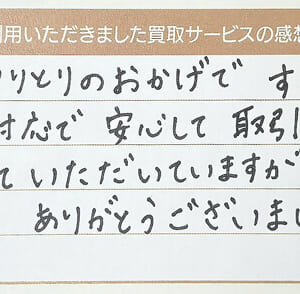 用いただきました買取サービスの感想
りとりのおかげで す
対応で 安心して 取引
ていただいていますが
ありがとうございまし